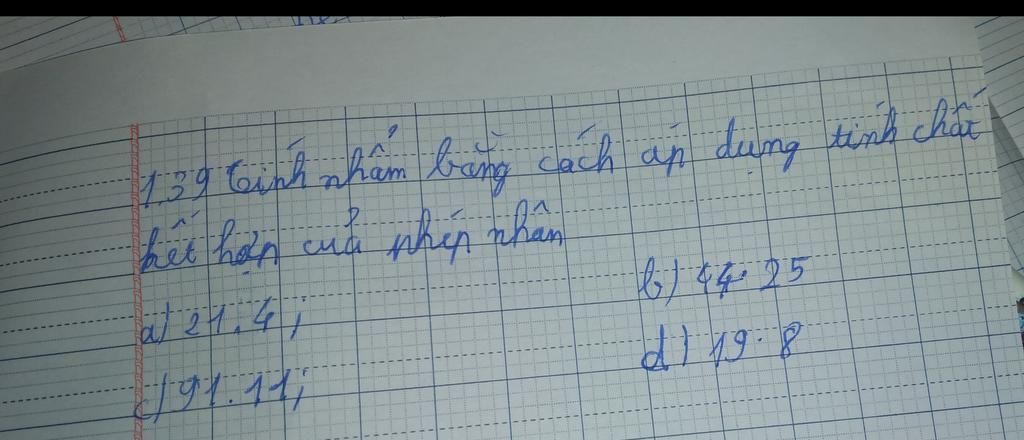 1.39 tính nhẩm bằng cách áp dụng tính chất
kết hợp của phép nhân
a) 21.4; b) 44.25
c) 91.11; d) 19.8